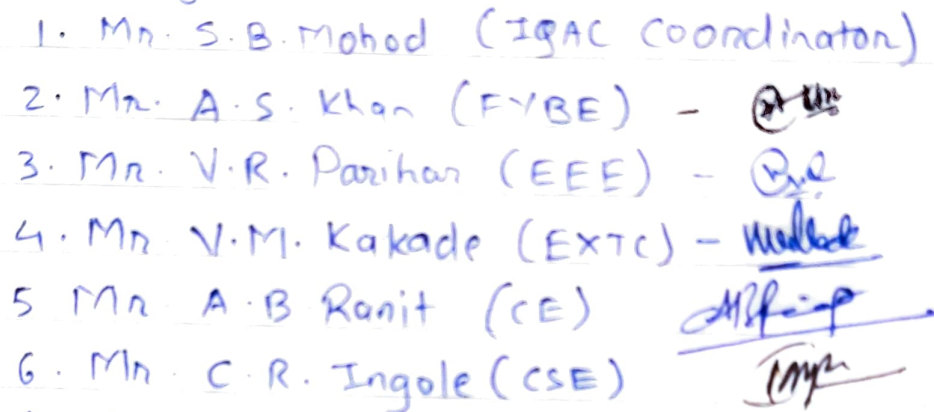 1. Mr. S.B. Mohod (IQAC Coordinator)
2. Mr. A.S. Khan (FYBE) -
3. Mr. V.R. Parihar (EEE) -
4. Mr V.M. Kakade (EXTC) -
5 Mr A.B Ranit (CE)
6. Mr. C.R. Ingole (CSE)